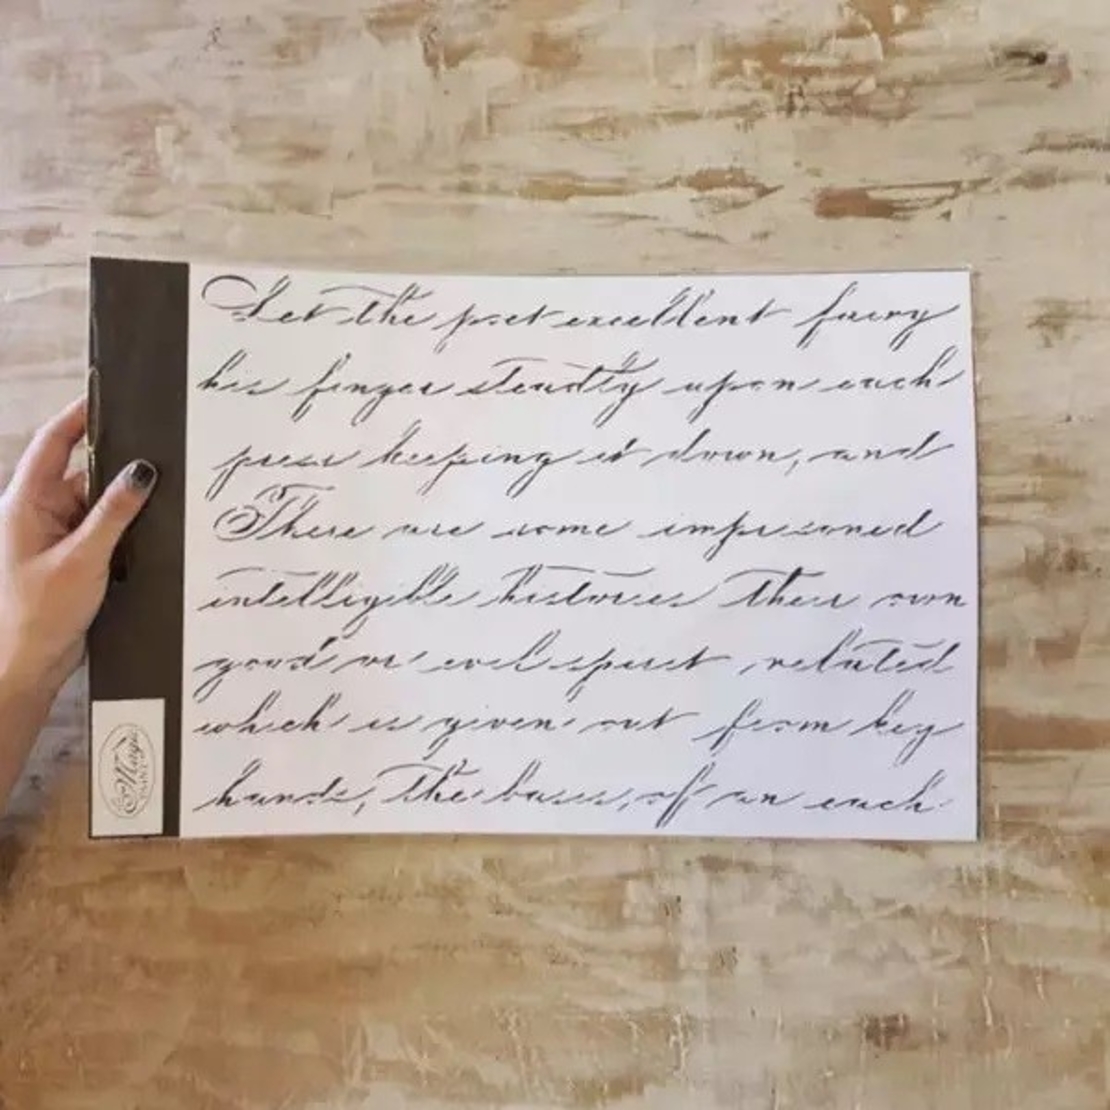 Let the poet excellent faery
his finger steadily upon each
press keeping it down, and
There are some imprisoned
intelligible histories their own
good or evil spirit related
which is given out from key
hands, the bases, of an each
Magic
PAINT